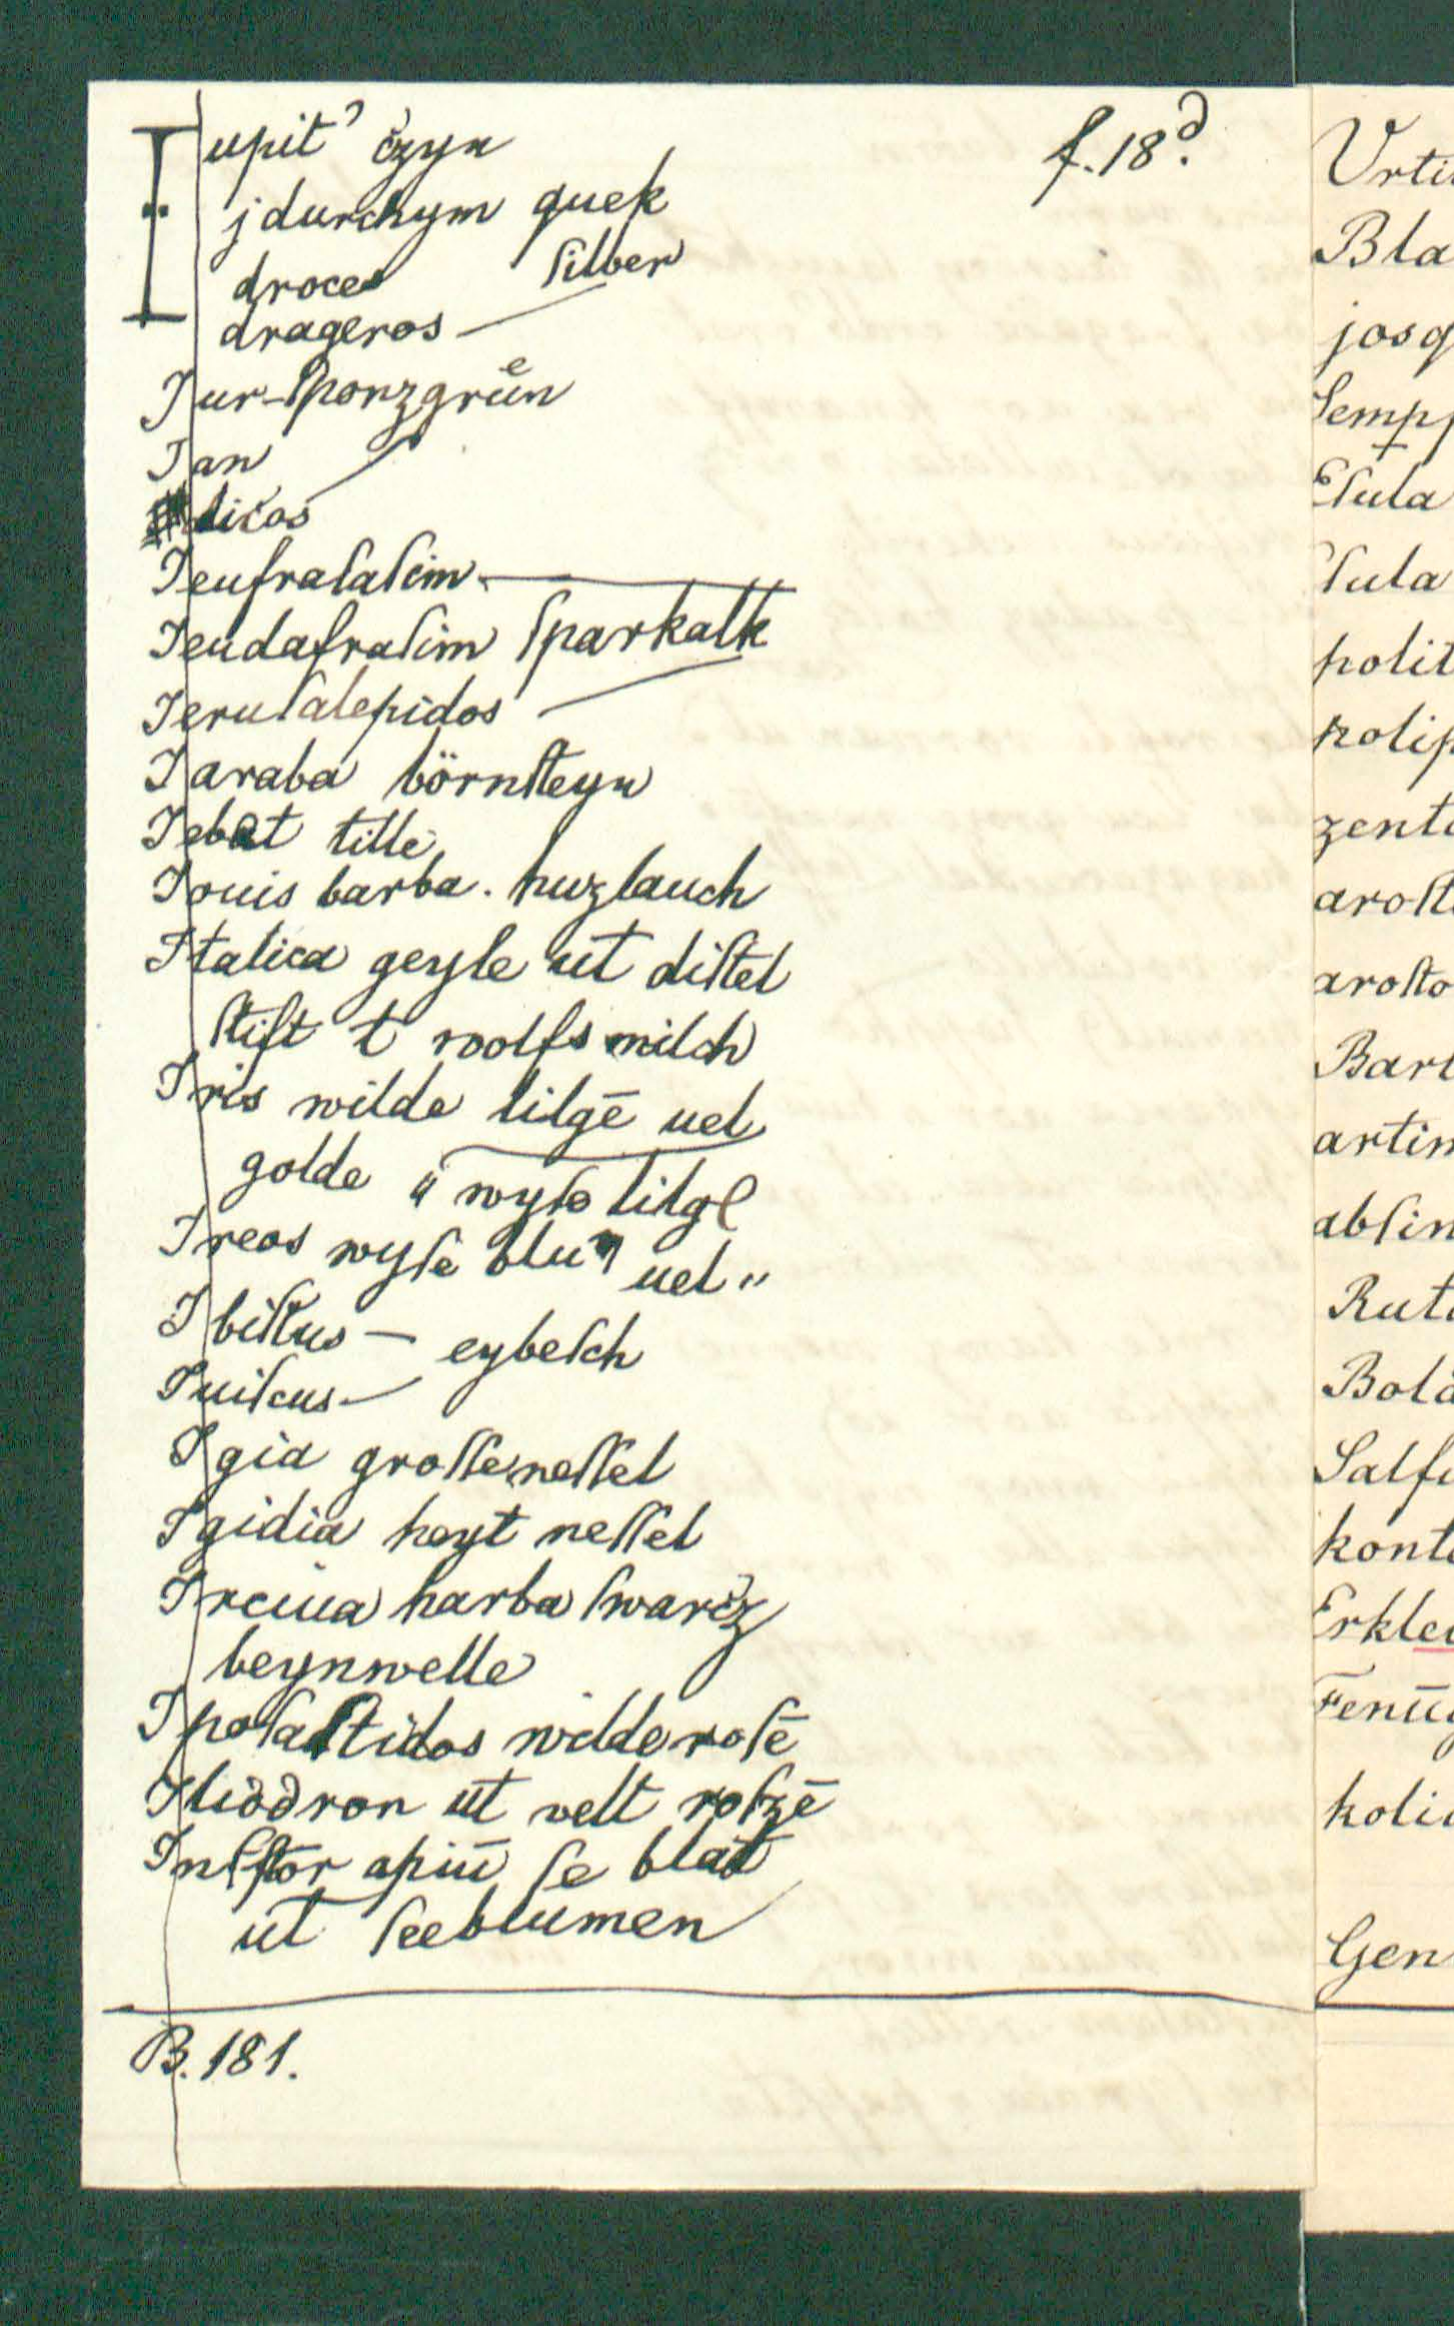 f. 18ᵈ.
Iupit’ czyn
jdurchym quek
droces ſilber
drageros —
Iur - ſponzgrün
Ian
licos
Ieufraſaſim
Ieudafraſim ſparkalk
Ieruſalepidos —
Iaraba börnſteyn
Iebet tille
Iouis barba . huzlauch
Italica geyle ut diſtel
ſtift t wolfs milch
Iris wilde lilgē uel
golde " wyſe lilge
Ireos wyſe blu uel "
Ibiſkus — eybeſch
Iuiſcus —
Igia groſſe neſſel
Igidia heyt neſſel
Ireiua harba ſwarcz
beynwelle
Ipoſaſtidos wilde roſē
Iliddron ut velt roſzē
apiū ſe blat
ut ſeeblumen
B. 181.
Bla
josq
Eſula
polit
polip
zent
aroſt
aroſto
Bar
artim
abſin
Rut
Bola
Salf
kont
Erkle
koli
Gen